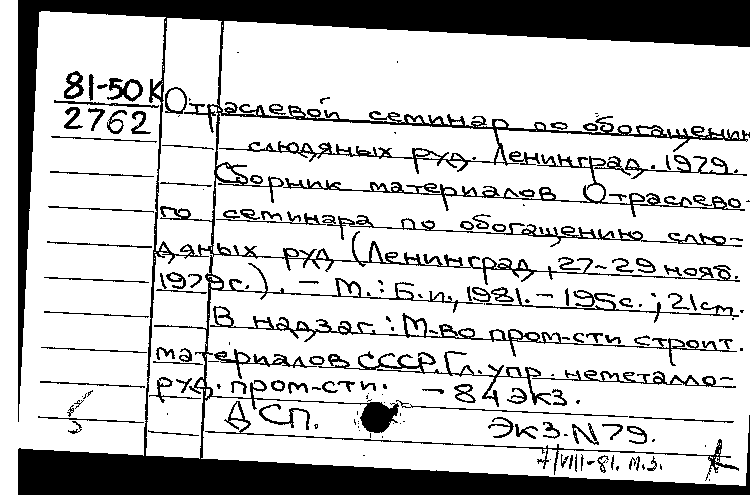 81-50К
2762
Отраслевой семинар по обогащению
слюдяных руд. Ленинград. 1979.
Сборник материалов Отраслево-
го семинара по обогащению слю-
дяных руд (Ленинград, 27-29 нояб.
1979г.). - М.: Б.и., 1981. - 195с.; 21см.
В надзаг.: М-во пром-сти строит.
материалов СССР. Гл. упр. неметалло-
руд. пром-сти. - 84 экз.
ДСП.
Экз. N 79.
7/VIII-81. М.З.